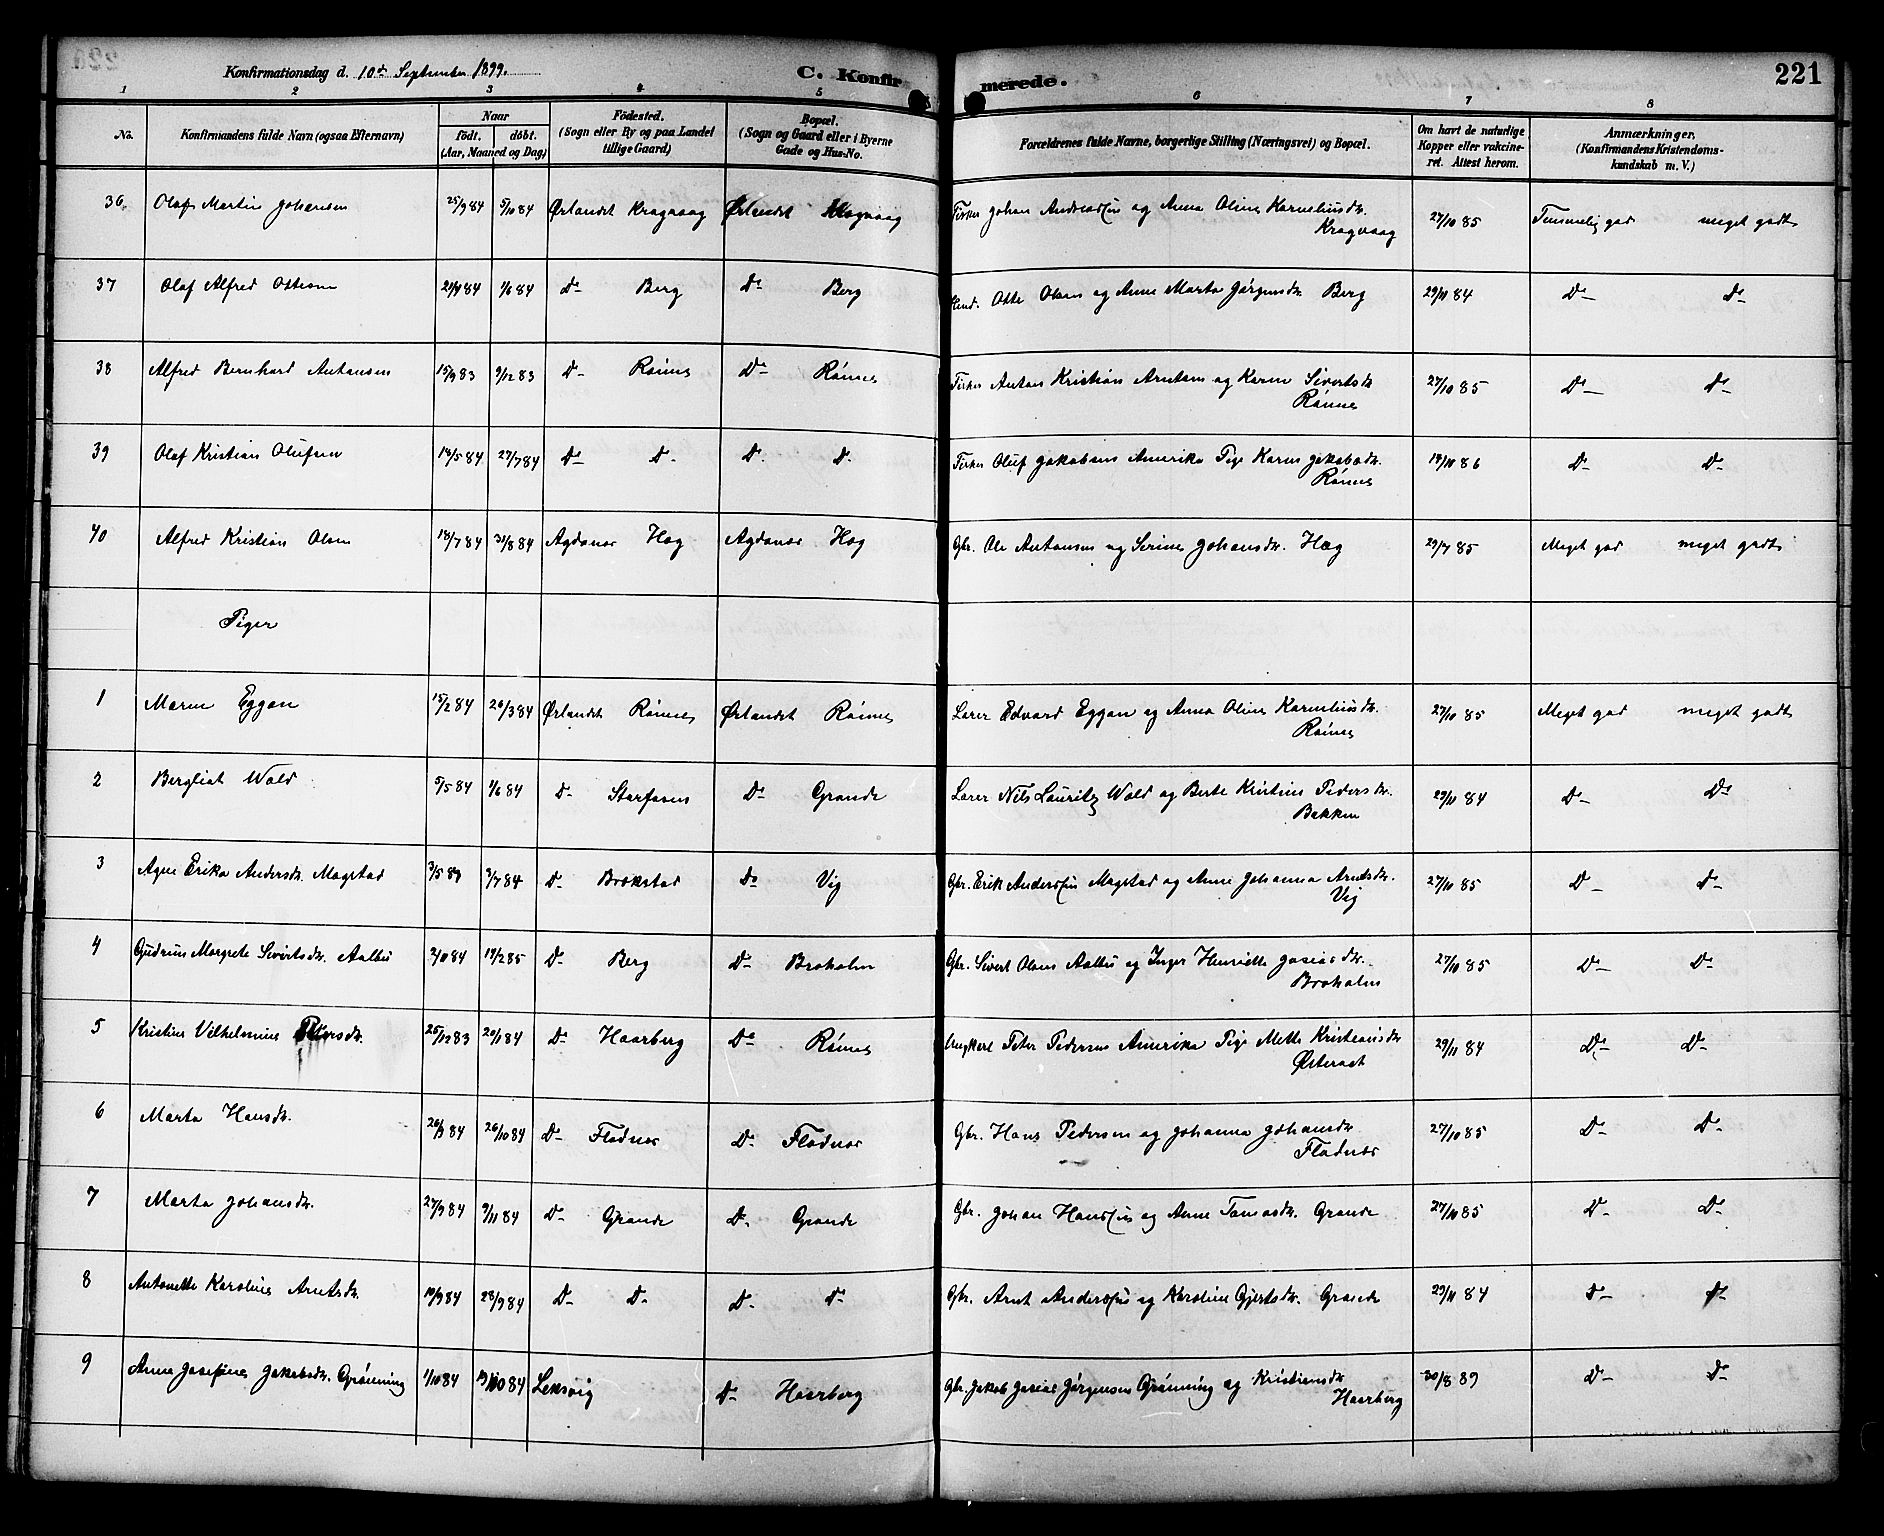 Konfirmationsdag d. 10de September 1899.
C. Konfirmerede.
221
1 2 3 4 5 6 7 8
No.
Konfirmandens fulde Navn (ogsaa Efternavn)
Naar
födt. döbt.
(Aar, Maaned og Dag)
Födested.
(Sogn eller By og paa Landet
tillige Gaard)
Bopæl.
(Sogn og Gaard eller i Byerne
Gade og Hus-No.
Forældrenes fulde Navne, borgerlige Stilling (Næringsvei) og Bopæl.
Om havt de naturlige
Kopper eller vakcine-
ret. Attest herom.
Anmærkninger.
(Konfirmandens Kristendoms-
kundskab m. V.)
36. Olaf Martin Johansen 25/9 84 5/10 84 Ørlandet Kragvaag Ørlandet Kragvaag Fisker Johan Andreassen og Anna Oline Korneliusdtr. 27/10 85 Temmelig god meget godt
Kragvaag
37 Olaf Alfred Ottesen 1/6 84 Do Berg Do Berg Otto Olsen og Anne Marta Jørgensdtr Berg 29/11 84 Do Do
38 Alfred Bernhard Antonsen 15/9 83 9/12 83 Do Rønnes Do Rønnes Fisker Anton Kristian Arntsen og Karen Sivertsdtr 27/10 85 Do Do
Rønnes
39 Olaf Kristian Olufsen 14/5 84 27/7 84 Do Do Do Do Fisker Oluf Jakobsen Amerika Pige Karen Jakobsdtr. 19/11 86 Do Do
Rønnes
40 Alfred Kristian Olsen 18/7 84 31/8 84 Agdenæs Høg Agdenæs Høg Gbr. Ole Antonsen og Serine Johansdtr. Høg 29/7 85 Meget god meget godt
Piger
1 Maren Eggan 15/2 84 26/3 84 Ørlandet Rønnes Ørlandet Rønnes Lærer Edvard Eggan og Anna Oline Korneliusdtr. 27/10 85 Meget god meget godt
Rønnes
2 Bergliot Wold 5/5 84 1/6 84 Do Storfosen Do Grande Lærer Nils Lauritz Wold og Berte Kristine Pedersdtr. 29/11 84 Do Do
Bakken
3 Agne Erika Andersdtr. Mogstad 3/7 84 Do Brækstad Do Vig Gbr. Erik Anderssen Mogstad og Anne Johanna Arntsdtr. 27/10 85 Do Do
Vig
4 Gjudrun Margrete Sivertsdtr. Aalbu 2/10 84 19/2 85 Do Berg Do Broholm Gbr. Sivert Olsen Aalbu og Inger Henriette Josiasdtr. 27/10 85 Do Do
Broholm
5 Kristine Vilhelmine Petersdtr. 25/12 83 20/1 84 Do Haarberg Do Rønnes Ungkarl Peter Pedersen Amerika Pige Mette Kristiansdtr 29/11 84 Do Do
Østeraat
6 Marta Hansdtr. 26/9 84 26/10 84 Do Flodnes Do Flodnes Gbr. Hans Pedersen og Johanna Johansdtr 27/10 85 Do Do
Flodnes
7 Marta Johansdtr. 27/9 84 9/11 84 Do Grande Do Grande Gbr. Johan Hanssen og Anne Tomasdtr. Grande 27/10 85 Do Do
8 Antonette Karoline Arntsdtr. 10/9 84 28/9 84 Do Do Do Do Gbr. Arnt Anderssen og Karoline Gjertsdtr. Grande 29/11 84 Do Do
9 Anne Josefine Jakobsdtr. Grønning 1/10 84 19/10 84 Leksvig Do Haarberg Gbr. Jakob Josias Jørgensen Grønning og Kristiansdtr 30/8 89 Do Do
Haarberg